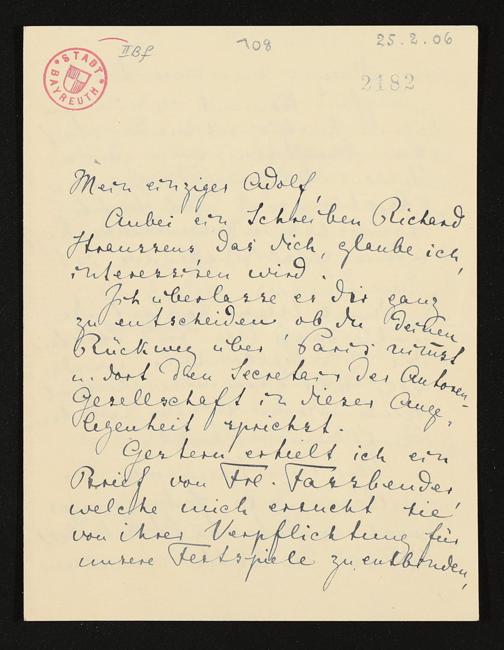 II Bf
108
25. 2. 06
STADT BAYREUTH
2182
Mein einziger Adolf,
Anbei ein Schreiben Richard
Straussens das dich, glaube ich,
interessiren wird.
Ich überlasse es dir ganz
zu entscheiden ob du deinen
Rückweg über Paris nimst
u. dort den Secretair der Autoren-
Gesellschaft in dieser Ange-
legenheit sprichst.
Gestern erhielt ich ein
Brief von Frl. Fassbender,
welche mich ersucht sie
von ihrer Verpflichtung für
unsere Festspiele zu entbinden,